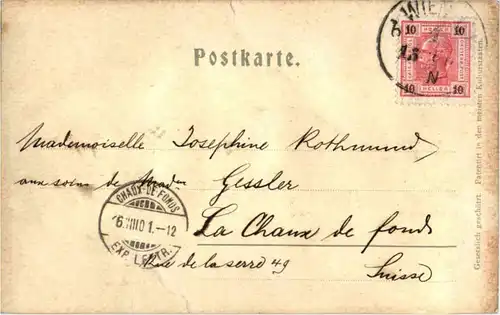 WIEN
10 10
HELLER
10 10
Postkarte.
Mademoiselle Josephine Rothmund
aux soins de Mad. Gessler
La Chaux de fonds
Rue de la serre 49
Suisse
CHAUX-DE-FONDS
EXP. LETTR.
Gesetzlich geschützt. Patentirt in den meisten Kulturstaaten.